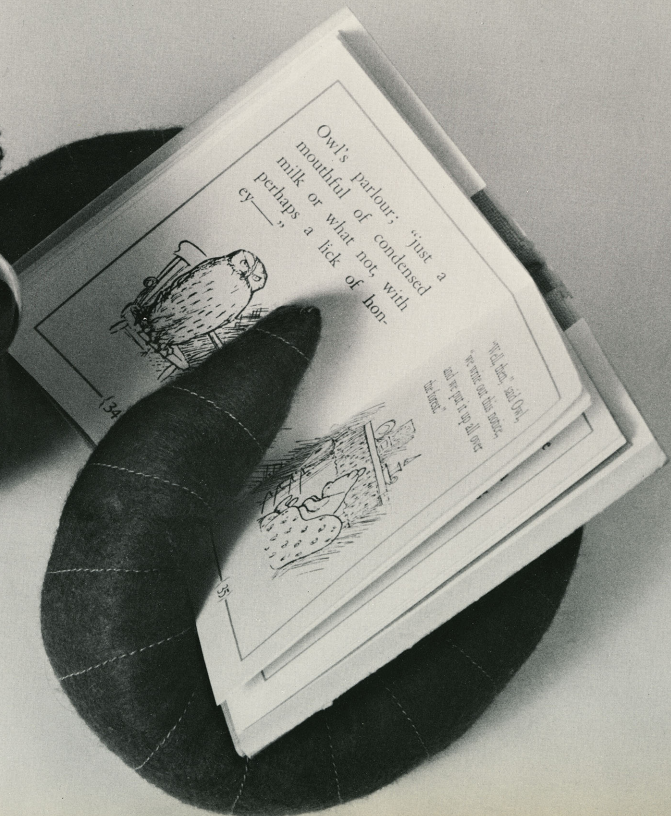 Owl's parlour; "just a
mouthful of condensed
milk or what not, with
perhaps a lick of hon-
ey——"
{34
"Well, then," said Owl,
"we write out this notice,
and we put it up all over
the forest."
35